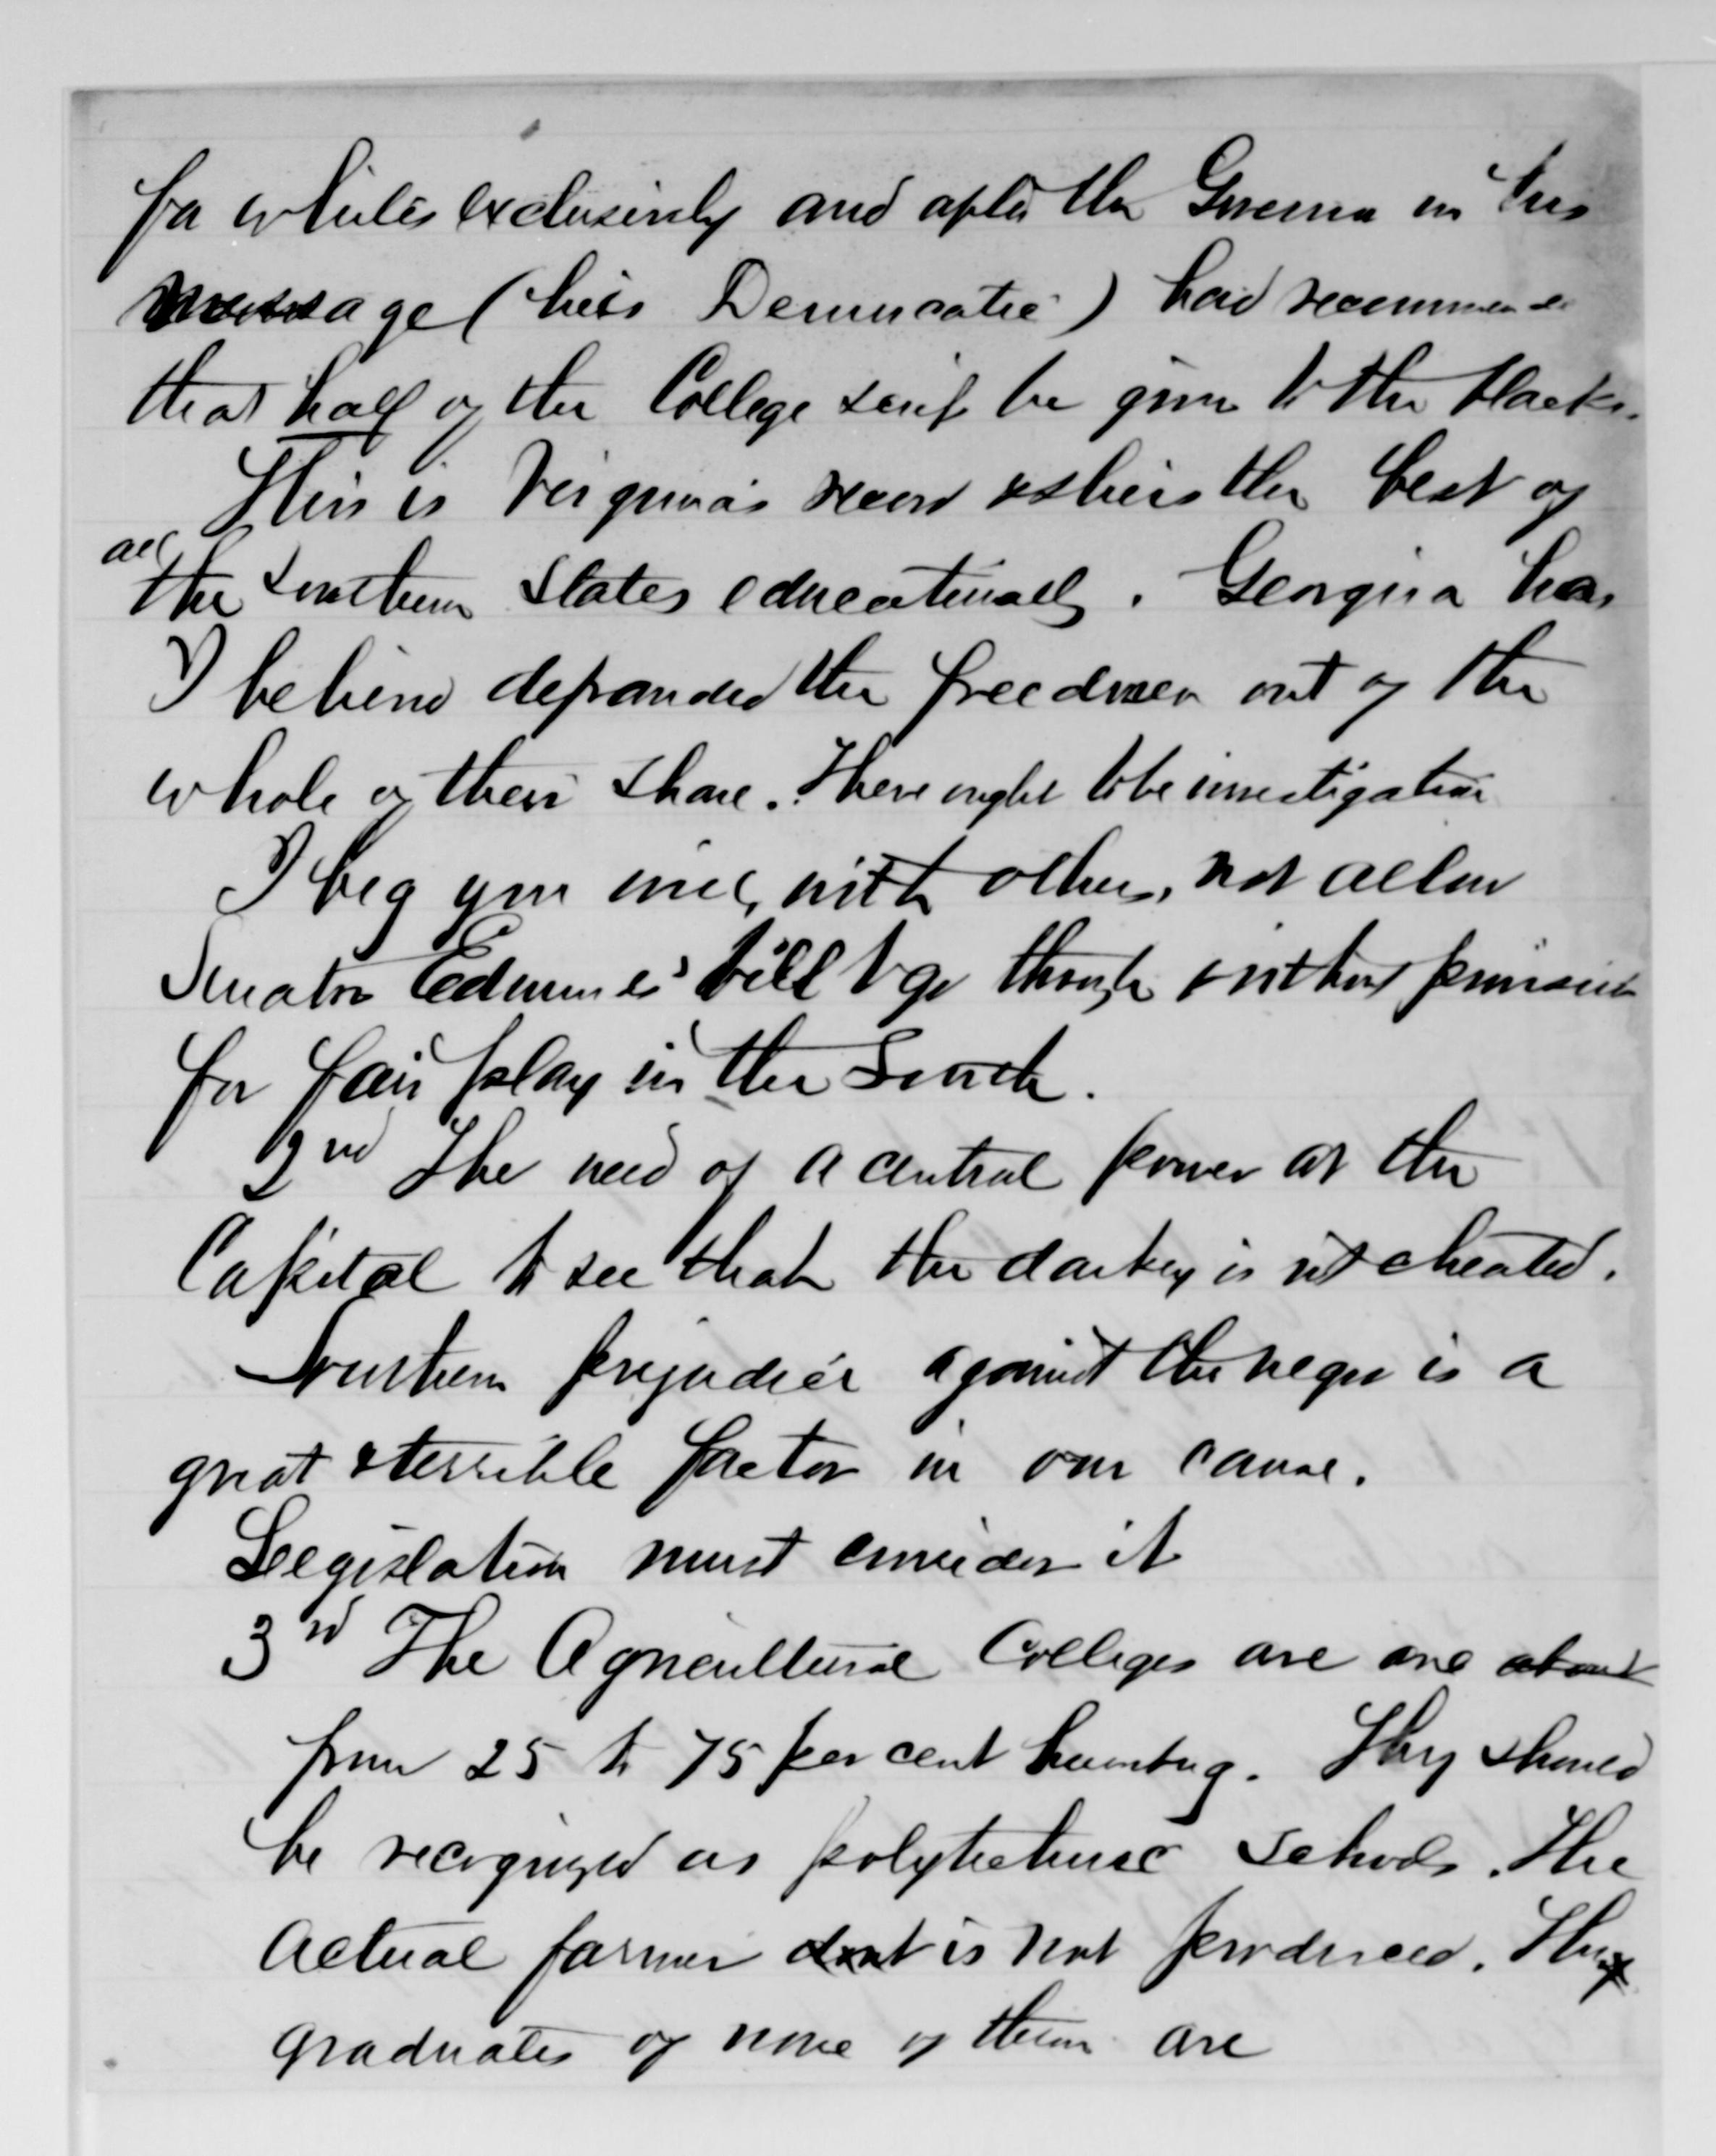 for whites exclusively and after the Governor in his
message (he is Democratic) had recommended
that half of the College scrip be given to the blacks.
This is Virginia's record & she is the best of
all
the Southern States educationally. Georgia has
I believe defrauded the freedmen out of the
whole of their share. There ought to be investigation
I beg you will, with others, not allow
Senator Edmunds' bill to go through without provision
for fair play in the South.
2nd The need of a central power at the
Capital to see that the darkey is not cheated.
Southern prejudice against the negro is a
great & terrible factor in our cause.
Legislation must consider it
3rd The Agricultural Colleges are are about
from 25 to 75 per cent humbug. They should
be recognized as polytechnic schools. The
actual farmer dont is not produced. The
graduates of none of them are